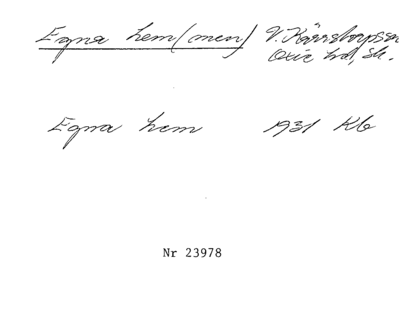 Egna hem(men) V. Kärrstorps sn
Oxie hd, Sk.
Egna hem 1931 Kb
Nr 23978